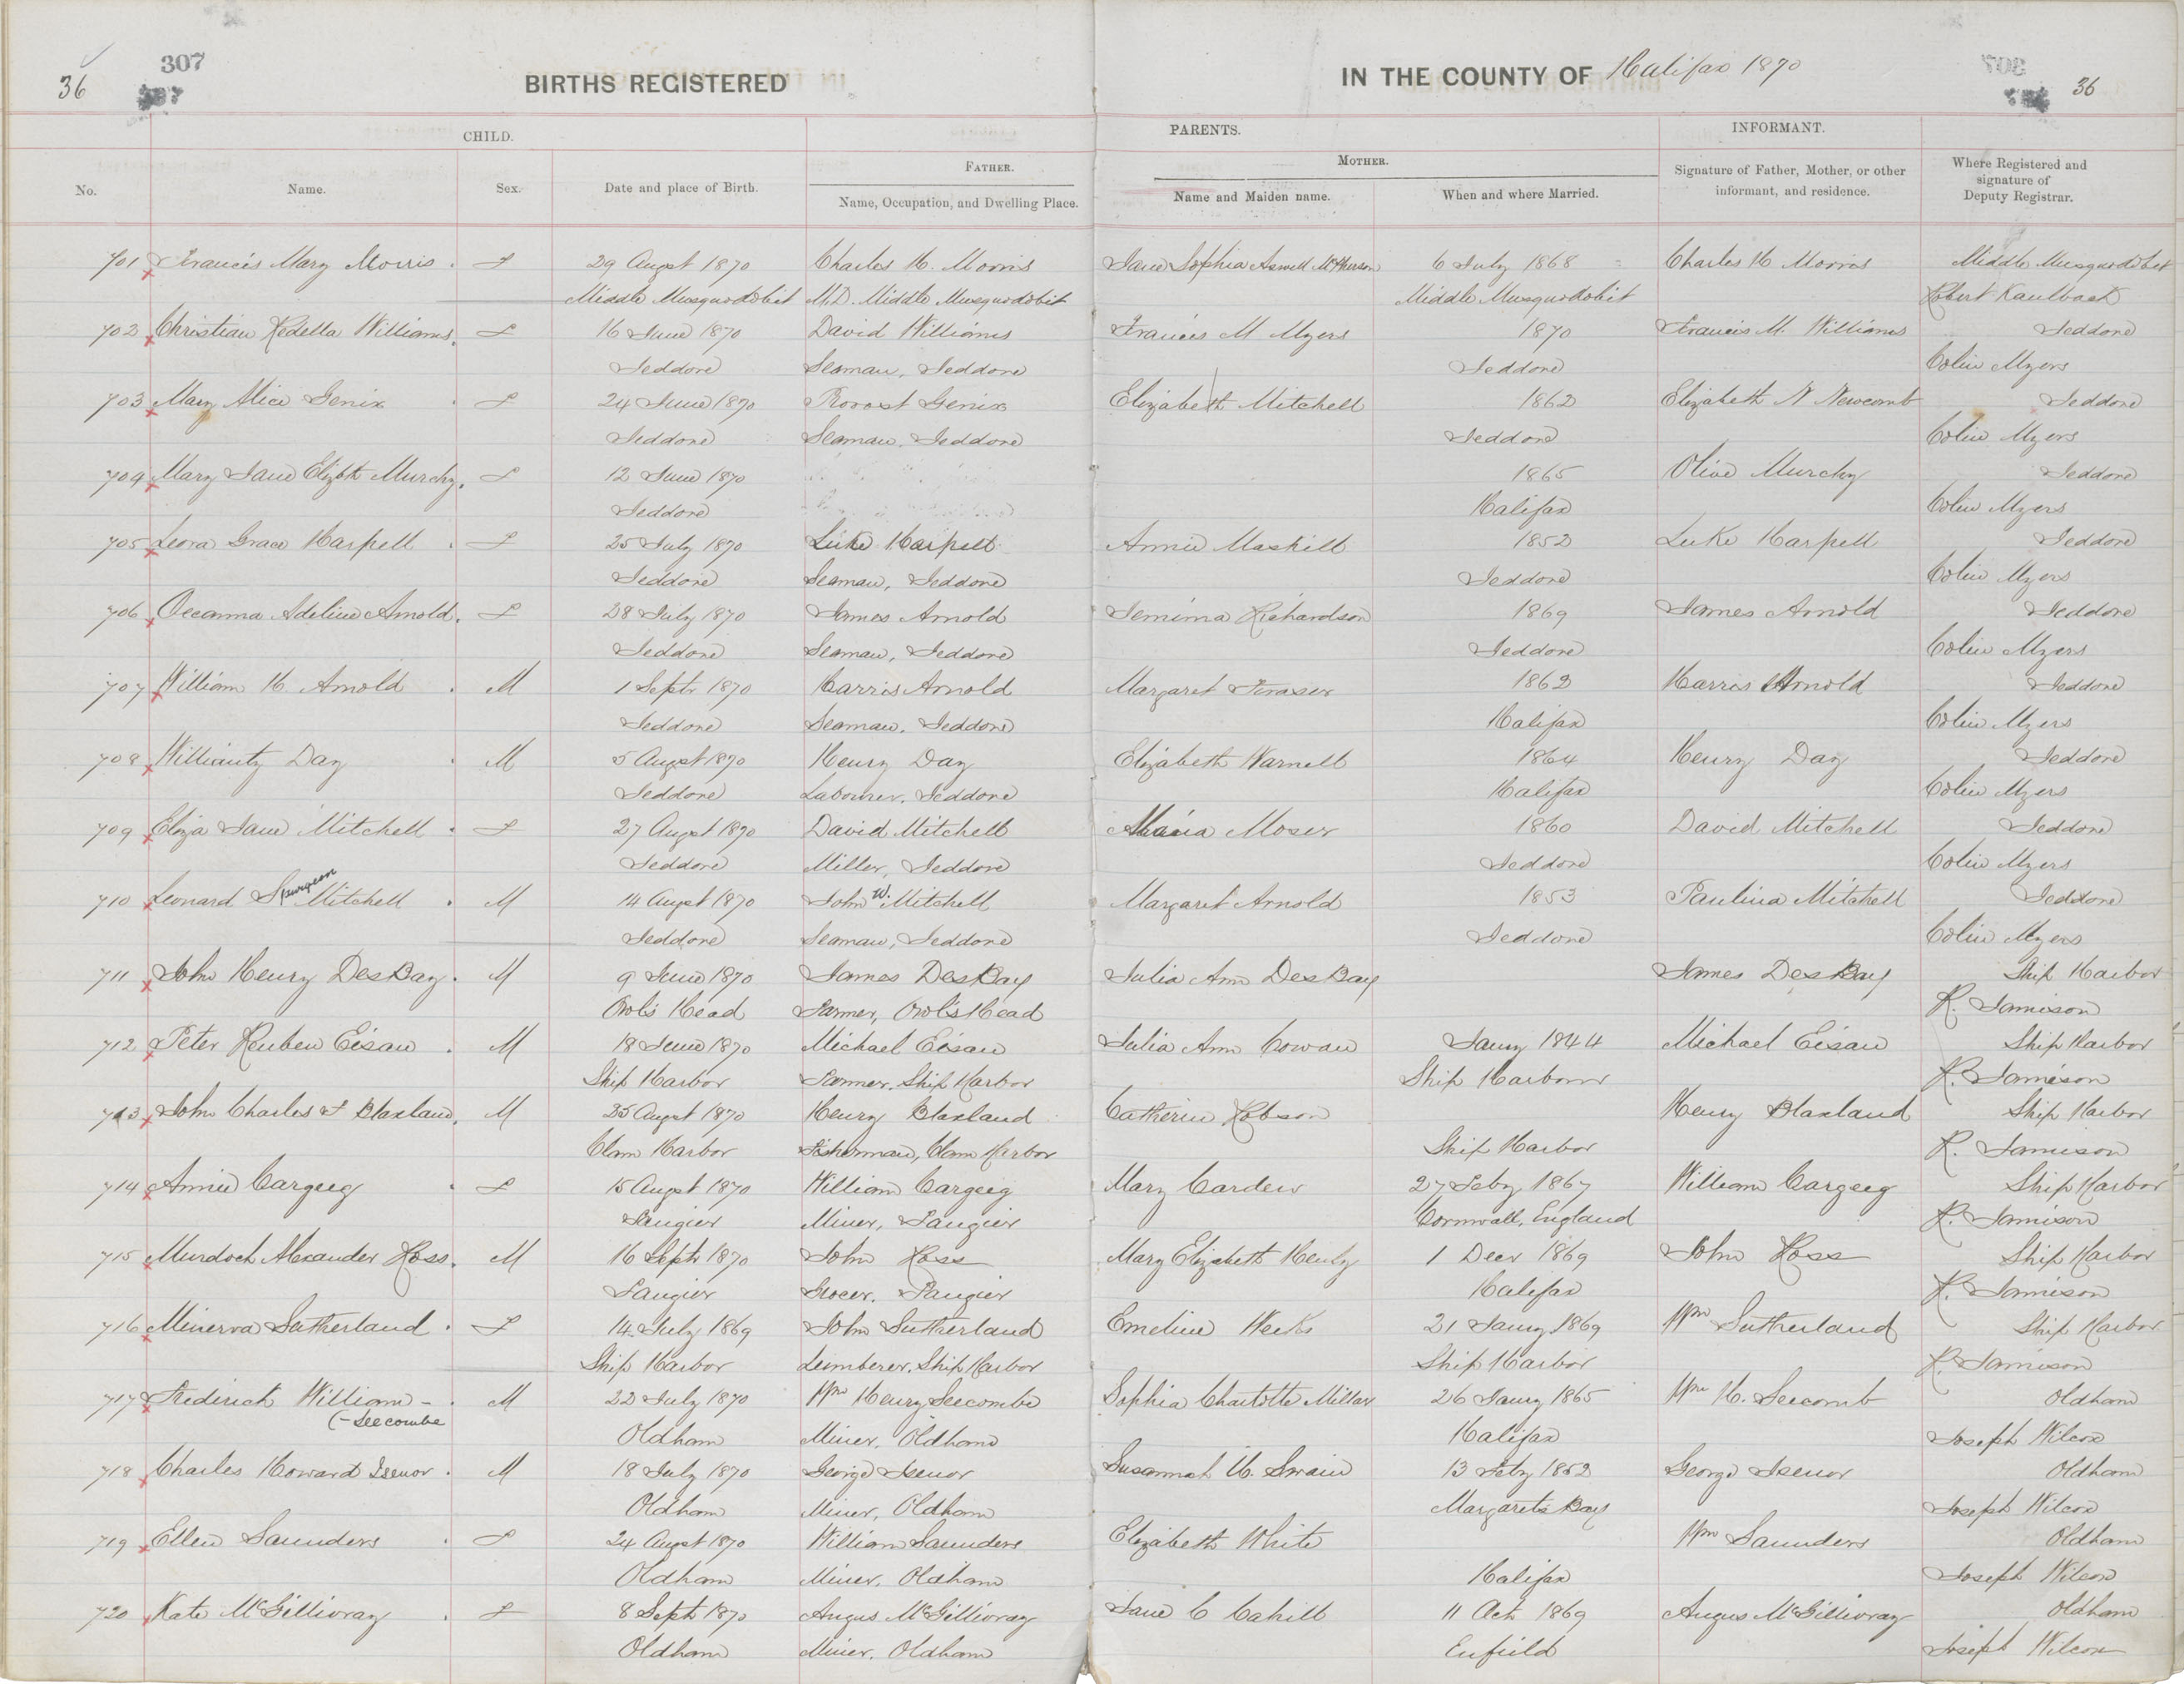 36 307 BIRTHS REGISTERED IN THE COUNTY OF Halifax 1870 36
CHILD. PARENTS. INFORMANT.
No. Name. Sex. Date and place of Birth. FATHER. Name, Occupation, and Dwelling Place. MOTHER. Name and Maiden name. When and where Married. Signature of Father, Mother, or other informant, and residence. Where Registered and signature of Deputy Registrar.
701 Francis Mary Morris F 29 Augst 1870 Charles H. Morris Jane Sophia McPherson 6 July 1868 Charles H Morris Middle Musquodobit
Middle Musquodobit M.D. Middle Musquodobit Middle Musquodobit Robert Kaulback
702 Christian Redella Williams F 16 June 1870 David Williams Francis M Myers 1870 Francis M. Williams Jeddore
Jeddore Seaman, Jeddore Jeddore Colin Myers
703 Mary Alice Genix F 24 June 1870 Provost Genix Elizabeth Mitchell 1862 Elizabeth N Newcomb Jeddore
Jeddore Seaman, Jeddore Jeddore Colin Myers
704 Mary Jane Elizbth Murchy F 12 June 1870 1865 Olive Murchy Jeddore
Jeddore Halifax Colin Myers
705 Leora Grace Harpell F 25 July 1870 Luke Harpell Annie Maskill 1852 Luke Harpell Jeddore
Jeddore Seaman, Jeddore Jeddore Colin Myers
706 Oceanna Adeline Arnold F 28 July 1870 James Arnold Jemima Richardson 1869 James Arnold Jeddore
Jeddore Seaman, Jeddore Jeddore Colin Myers
707 William H. Arnold M 1 Septr 1870 Harris Arnold Margaret Fraser 1862 Harris Arnold Jeddore
Jeddore Seaman, Jeddore Halifax Colin Myers
708 Day M 5 Augst 1870 Henry Day Elizabeth Warnell 1864 Henry Day Jeddore
Jeddore Labourer, Jeddore Halifax Colin Myers
709 Eliza Jane Mitchell F 27 Augst 1870 David Mitchell Maria Moser 1860 David Mitchell Jeddore
Jeddore Miller, Jeddore Jeddore Colin Myers
710 Leonard Spurgeon Mitchell M 14 Augst 1870 John W. Mitchell Margaret Arnold 1853 Paulina Mitchell Jeddore
Jeddore Seaman, Jeddore Jeddore Colin Myers
711 John Henry DesBay M 9 June 1870 James DesBay Julia Ann DesBay James DesBay Ship Harbor
Owls Head Farmer, Owls Head R. Jamison
712 Peter Reuben Eisan M 18 June 1870 Michael Eisan Julia Ann Cowan Jany 1844 Michael Eisan Ship Harbor
Ship Harbor Farmer, Ship Harbor Ship Harbour R. Jamison
713 John Charles F Blaxland M 25 Augst 1870 Henry Blaxland Catherine Hobson Henry Blaxland Ship Harbor
Clam Harbor Fisherman, Clam Harbor Ship Harbor R. Jamison
714 Annie Cargeeg F 15 Augst 1870 William Cargeeg Mary Cardew 27 Feby 1867 William Cargeeg Ship Harbor
Tangier Miner, Tangier Cornwall, England R. Jamison
715 Murdoch Alexander Ross M 16 Septr 1870 John Ross Mary Elizabeth Henly 1 Decr 1869 John Ross Ship Harbor
Tangier Grocer, Tangier Halifax R. Jamison
716 Minerva Sutherland F 14 July 1869 John Sutherland Emeline Weeks 21 Jany 1869 Wm Sutherland Ship Harbor
Ship Harbor Lumberer, Ship Harbor Ship Harbor R. Jamison
717 Fredirick William - M 22 July 1870 Wm Henry Seecombe Sophia Charlotte Millar 26 Jany 1865 Wm H. Seecomb Oldham
(- Seecombe Oldham Miner, Oldham Halifax Joseph Wilcox
718 Charles Howard Isenor M 18 July 1870 George Isenor Susannah U. Swain 13 Feby 1862 George Isenor Oldham
Oldham Miner, Oldham Margarets Bay Joseph Wilcox
719 Ellen Saunders F 24 Augst 1870 William Saunders Elizabeth White Wm Saunders Oldham
Oldham Miner, Oldham Halifax Joseph Wilcox
720 Kate McGillivray F 8 Septr 1870 Angus McGillivray Jane C Cahill 11 Oct 1869 Angus McGillivray Oldham
Oldham Miner, Oldham Enfield Joseph Wilcox